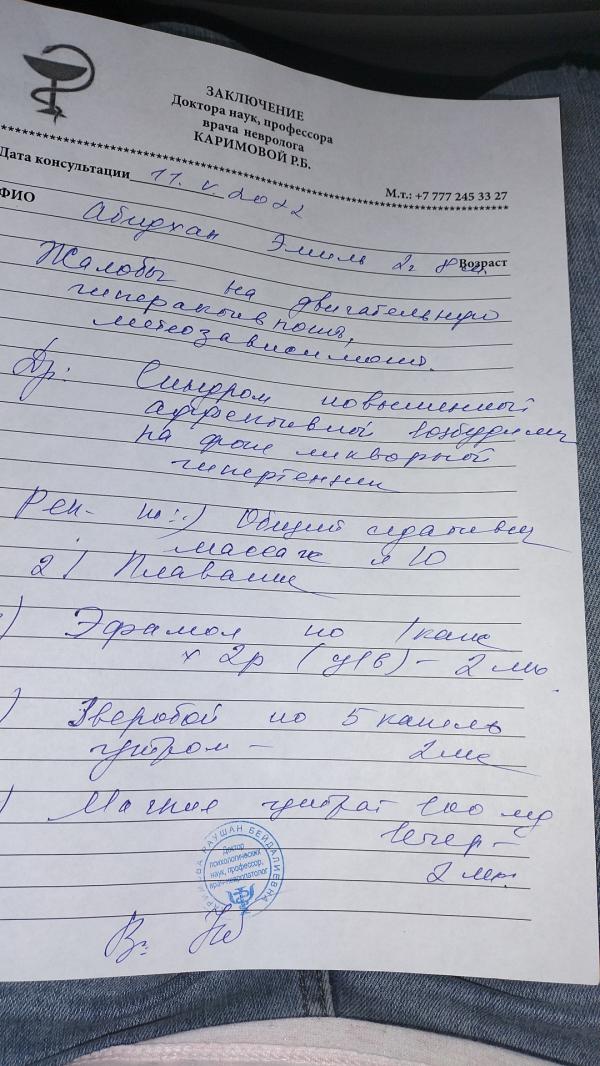 ЗАКЛЮЧЕНИЕ
Доктора наук, профессора
врача невролога
КАРИМОВОЙ Р.Б.
Дата консультации 11. V. 2022
М.т.: +7 777 245 33 27
ФИО Абидхан Эмиль 2г 8м Возраст
Жалобы на двигательную
гиперактивность,
метеозависимость.
Dр: Синдром повышенной
аффективной возбудим
на фоне ликворной
гипертензии
Рек- но: 1) Общий седативный
массаж N 10
2) Плавание
) Эфамол по 1 капс
х 2р (у/в) - 2 мес.
) Зверобой по 5 капель
утром - 2 мес
) Магния цитрат 100 мг
вечер -
2 мес.
КАРИМОВА РАУШАН БЕЙДАЛИЕВНА
Доктор
психологических
наук, профессор,
врач-невропатолог
В: